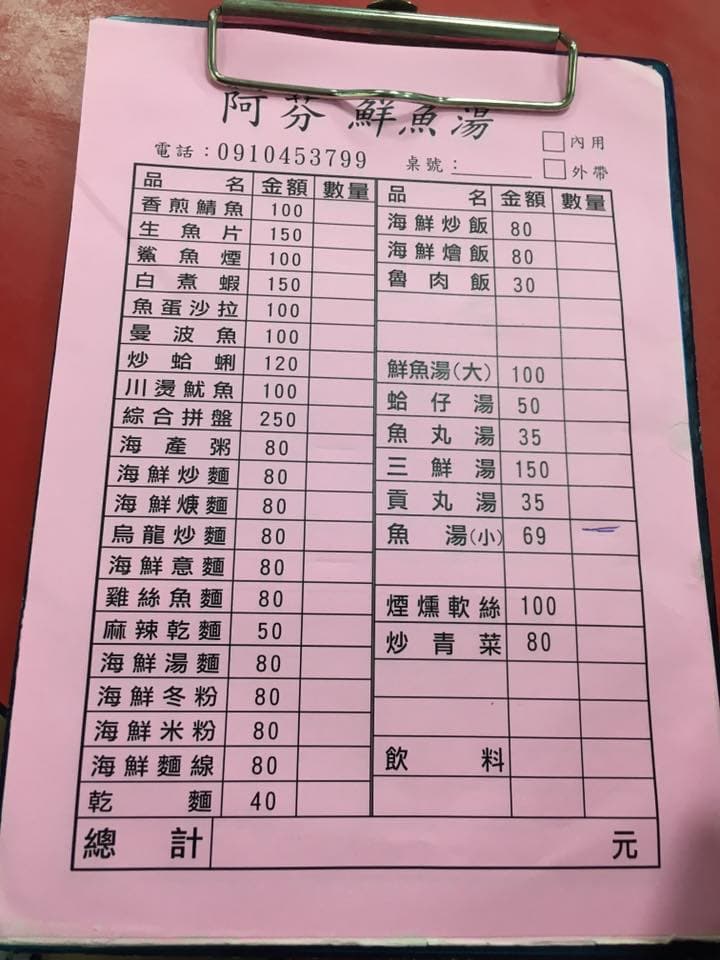 阿芬 鮮魚湯
內用
電話：0910453799 桌號：
外帶
品名 金額 數量
香煎鯖魚 100
生魚片 150
鯊魚煙 100
白煮蝦 150
魚蛋沙拉 100
曼波魚 100
炒蛤蜊 120
川燙魷魚 100
綜合拼盤 250
海產粥 80
海鮮炒麵 80
海鮮焿麵 80
烏龍炒麵 80
海鮮意麵 80
雞絲魚麵 80
麻辣乾麵 50
海鮮湯麵 80
海鮮冬粉 80
海鮮米粉 80
海鮮麵線 80
乾麵 40
品名 金額 數量
海鮮炒飯 80
海鮮燴飯 80
魯肉飯 30
鮮魚湯(大) 100
蛤仔湯 50
魚丸湯 35
三鮮湯 150
貢丸湯 35
魚湯(小) 69
煙燻軟絲 100
炒青菜 80
飲料
總計 元